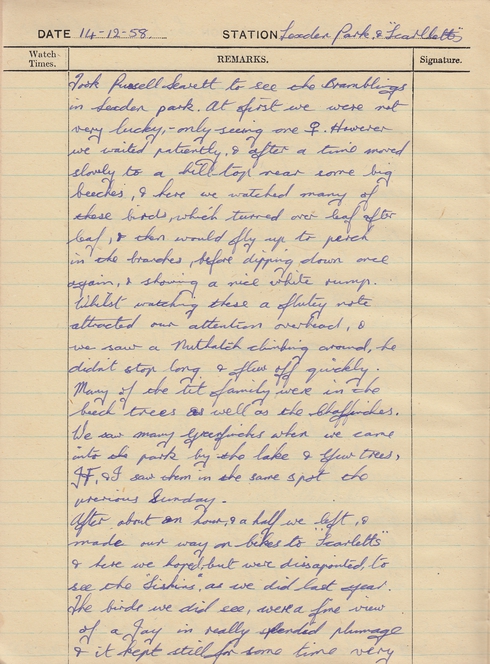 DATE 14-12-58. STATION Leaden Park & "Scarlletts"
Watch-Times. REMARKS. Signature.
Took Russell Leavett to see the Bramblings
in Leaden park. At first we were not
very lucky, - only seeing one ♀. However
we waited patiently, & after a time moved
slowly to a hill top near some big
beeches, & here we watched many of
these birds, which turned over leaf after
leaf, & then would fly up to perch
in the branches, before dipping down once
again, & showing a nice white rump.
Whilst watching these a flutey note
attracted our attention overhead, &
we saw a Nuthatch climbing around, he
didn't stop long & flew off quickly.
Many of the tit family were in the
beech trees as well as the Chaffinches.
We saw many Greenfinches when we came
into the park by the lake & Yew trees,
JF, & I saw them in the same spot the
previous Sunday.
After about an hour, & a half we left, &
made our way on bikes to "Scarletts"
& here we hoped, but were dissaponted, to
see the "Siskins", as we did last year.
The birds we did see, were a fine view
of a Jay in really splended plumage
& it kept still for some time very